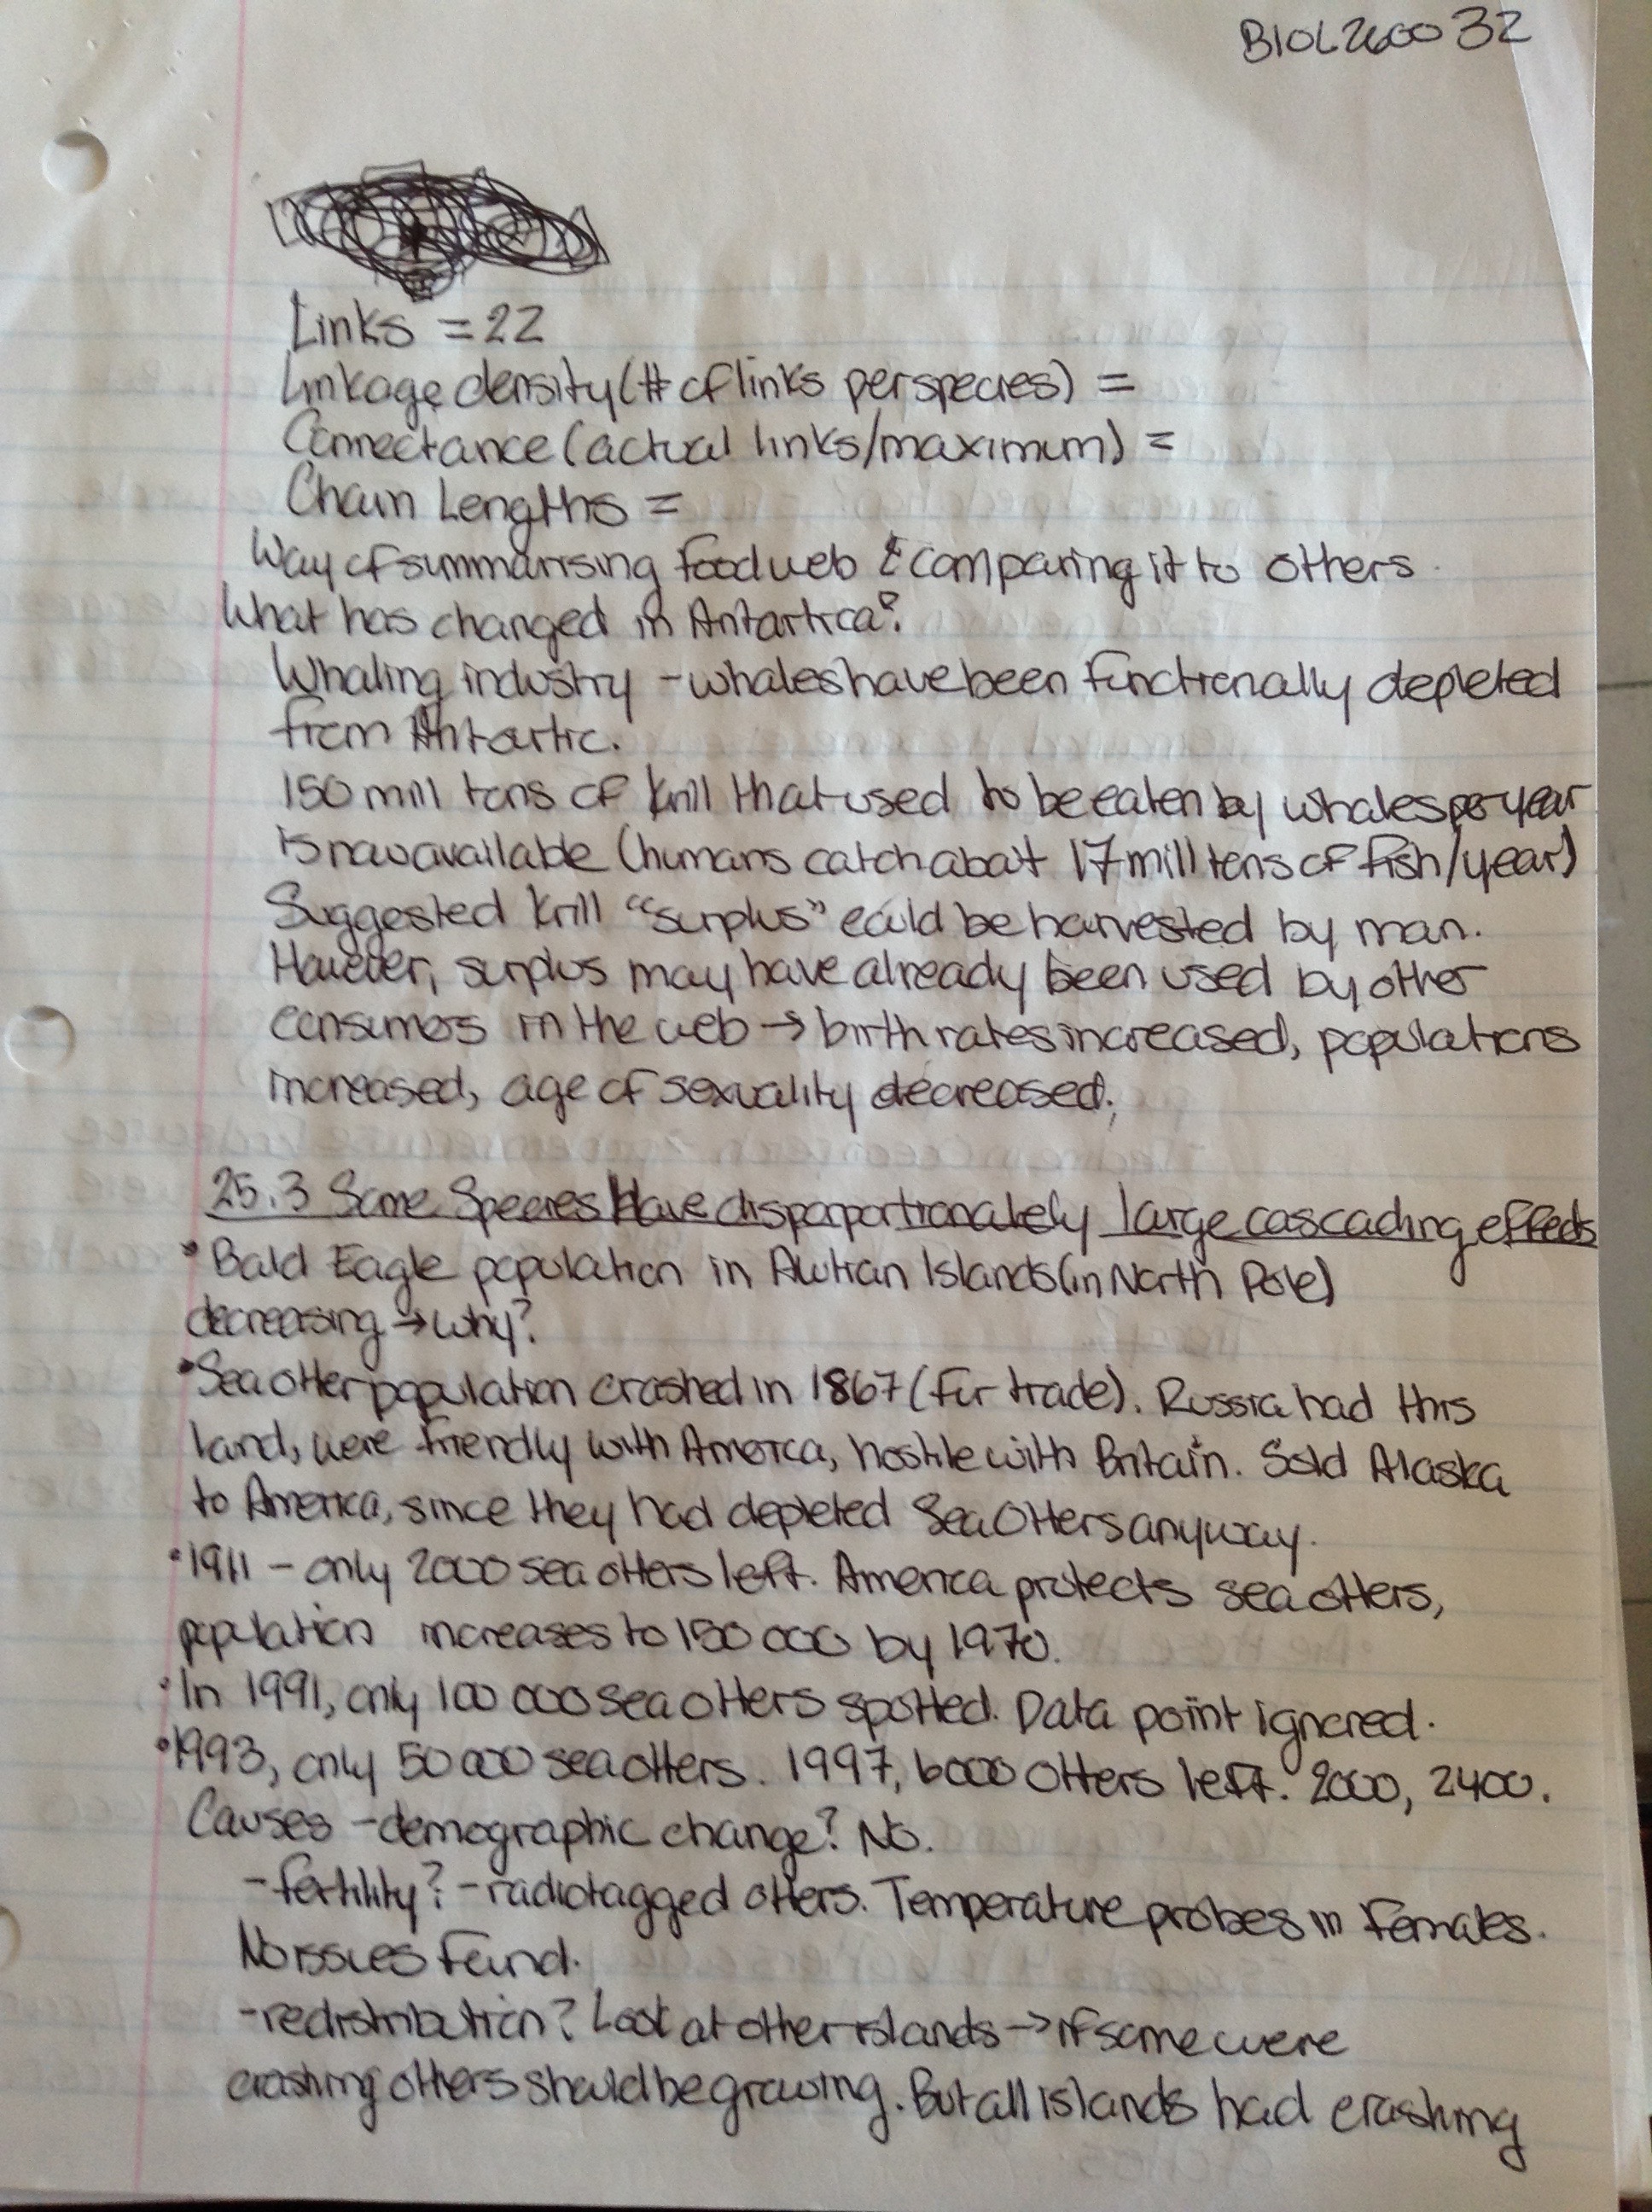 BIOL2600 32
Links = 22
Linkage density (# of links per species) =
Connectance (actual links/maximum) =
Chain Lengths =
Way of summarising food web & comparing it to others.
What has changed in Antartica?
Whaling industry - whales have been functionally depleted
from Antartic.
150 mill tons of krill that used to be eaten by whales per year
is now available (humans catch about 17 mill tons of fish/year)
Suggested krill "surplus" could be harvested by man.
However, surplus may have already been used by other
consumers in the web → birth rates increased, populations
increased, age of sexuality decreased.
25.3 Some Species Have disporportionately large cascading effects
• Bald Eagle population in Alutian Islands (in North Pole)
decreasing → why?
• Sea otter population crashed in 1867 (fur trade). Russia had this
land, were friendly with America, hostile with Britain. Sold Alaska
to America, since they had depleted Sea Otters anyway.
• 1911 - only 2000 sea otters left. America protects sea otters,
population increases to 150 000 by 1970.
• In 1991, only 100 000 sea otters spotted. Data point ignored.
• 1993, only 50 000 sea otters. 1997, 6000 otters left. 2000, 2400.
Causes - demographic change? No.
- fertility? - radiotagged otters. Temperature probes in females.
No issues found.
- redistribution? Look at other islands → if some were
crashing others should be growing. But all islands had crashing